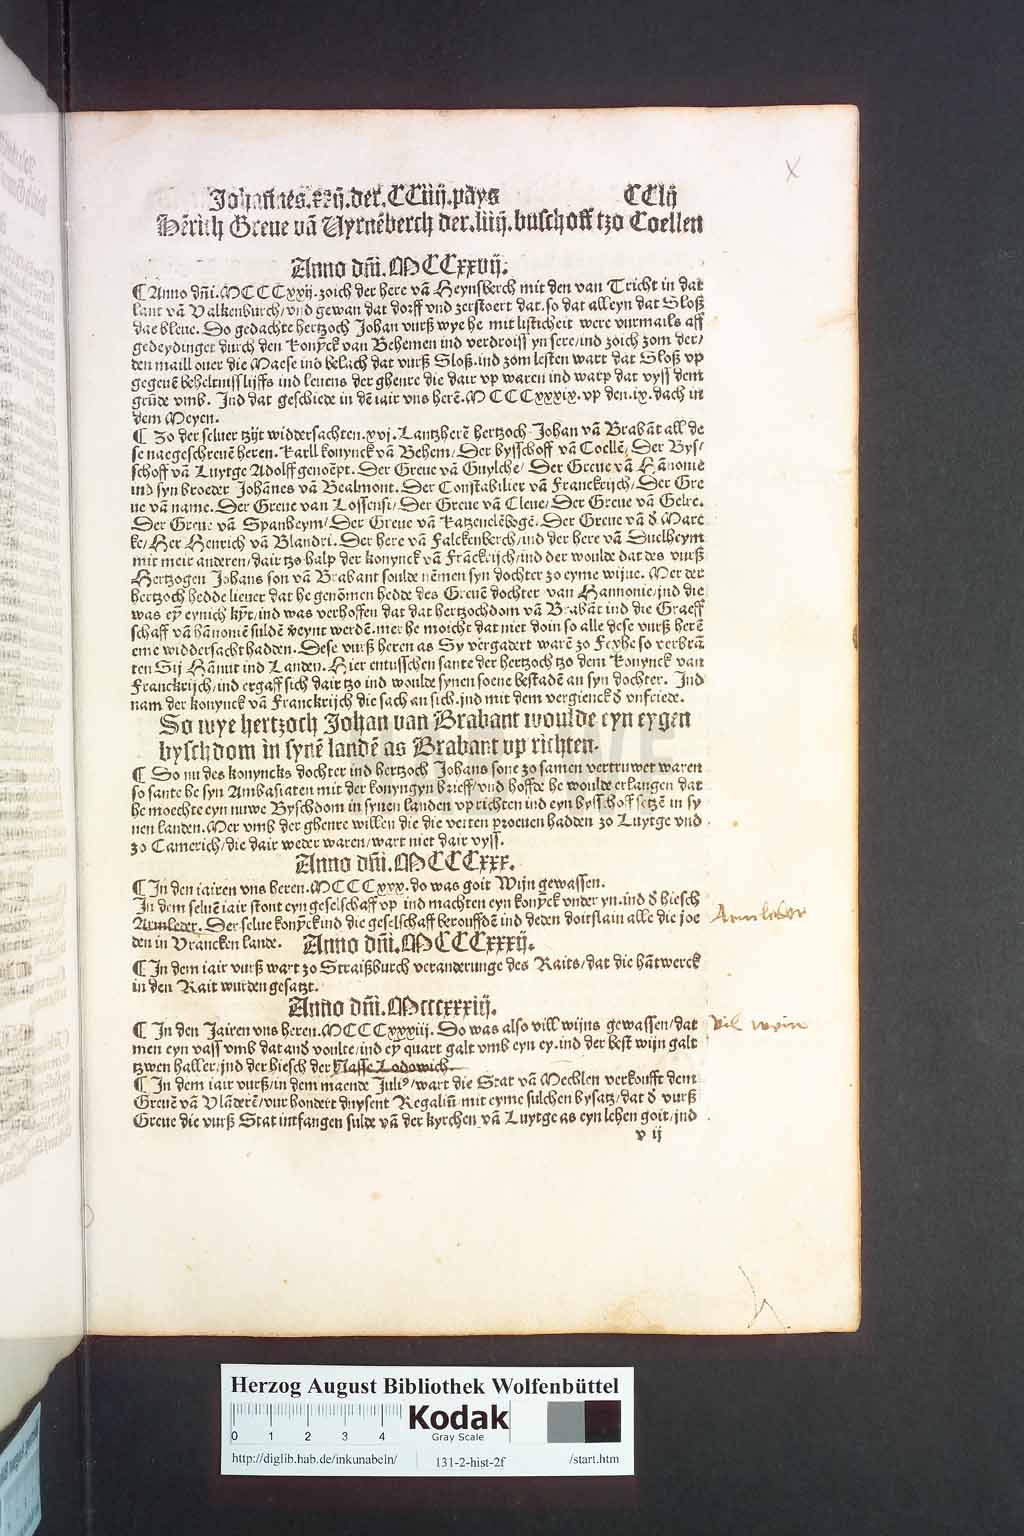 Johannes.xxij.der.CCiiij.pays CClij
Hērich Greue vā Vyrnēberch der.liiij.buschoff tzo Coellen
Anno dñi.MCCxxvij.
¶ Anno dñi.MCCCxxij.zoich der here vā Heynsberch mit den van Tricht in dat
lant vā Valkenburch/vnd gewan dat dorff vnd zerstoert dat.so dat alleyn dat Sloß
dae bleue. So gedachte hertzoch Johan vurß wye he mit listicheit were vurmails aff
gedeydinget durch den konyck van Behemen ind verdroiss yn sere/ind zoich zom der/
den maill ouer die Maese ind belach dat vurß Sloß.ind zom lesten wart dat Sloß vp
gegeuē beheltnissliffs ind leuens der ghenre die dair vp waren ind warp dat vyss dem
grūde vmb. Ind dat geschiede in dē iair vns herē.MCCCxxxix.vp den.ix.dach in
dem Meyen.
¶ Zo der seluer tzijt widdersachten.xvj.Lantzherē hertzoch Johan vā Brabāt all de
se naegeschreuē heren. Karll konynck vā Behem/Der bysschoff vā Coellē/Der Bys/
schoff vā Luytge Adolff genoēpt. Der Greue vā Guylche/Der Greue vā Hānonie
ind syn broeder Johānes vā Bealmont. Der Constabilier vā Franckrijch/Der Gre
ue vā name. Der Greue van Lossensi/Der Greue vā Cleue/Der Greue vā Gelre.
Der Greue vā Spanheym/Der Greue vā Katzenelēbogē. Der Greue vā d Marc
ke/Her Henrich vā Blandri. Der here vā Falckenberch/ind der here vā Duelheym
mit meir anderen/dair tzo halp der konynck vā Frāckrijch/ind der woulde dat des vurß
Hertzogen Johans son vā Brabant soulde nēmen syn dochter zo eyme wijue. Mer der
hertzoch hedde lieuer dat he genōmen hedde des Greuē dochter van Hannonie/ind die
was eȳ eynich kȳt/ind was verhoffen dat dat hertzochdom vā Brabāt ind die Graeff
schaff vā hānonie suldē vēynt werdē.mer he moicht dat niet doin so alle dese vurß herē
eme widdersacht hadden. Dese vurß heren as Sy vergadert warē zo Feyhe so verbrā
ten Sij Hānut ind Landen. Hier entusschen sante der hertzoch tzo dem konynck van
Franckrijch/ind ergaff sich dair tzo ind woulde synen soene bestadē an syn dochter. Ind
nam der konynck vā Franckrijch die sach an sich.ind mit dem vergienck d vnfriede.
So wye hertzoch Johan van Brabant woulde eyn eygen
byschdom in synē landē as Brabant vp richten.
¶ So nu des konyncks dochter ind hertzoch Johans sone zo samen vertruwet waren
so sante he syn Ambasiaten mit der konyngyn brieff/vnd hoffde he woulde erlangen dat
he moechte eyn nuwe Byschdom in synen landen vp richten ind eyn bysschof setzē in sy
nen landen. Mer vmb der ghenre willen die die verten proeuen hadden zo Luytge vnd
zo Camerich/die dair weder waren/wart niet dair vyss.
Anno dñi.MCCCxxx.
¶ In den iairen vns heren.MCCCxxx.do was goit Wijn gewassen.
In dem seluē iair stont eyn geselschaff vp ind machten eyn konyck vnder yn.ind d hiesch
Armleder. Der selue konyck ind die geselschaff berouffdē ind deden doitslain alle die joe
den in Vrancken lande. Anno dñi.MCCCxxxij.
¶ In dem iair vurß wart zo Straißburch veranderunge des Raits/dat die hātwerck
in den Rait wurden gesatzt.
Anno dñi.Mcccxxxiij.
¶ In den Jairen vns heren.MCCCxxxiij. So was also vill wijns gewassen/dat
men eyn vass vmb dat and voulte/ind eȳ quart galt vmb eyn ey.ind der best wijn galt
tzwen haller/ind der hiesch der Nasse Lodowich.
¶ In dem iair vurß/in dem maende Juli⁹/wart die Stat vā Mechlen verkoufft dem
Greuē vā Vlāderē/vur hondert duysent Regaliū/mit eyme sulchen bysatz/dat d vurß
Greue die vurß Stat intfangen sulde vā der kyrchen vā Luytge as eyn lehen goit/ind
v ij
Armleder
Vil wein
Herzog August Bibliothek Wolfenbüttel
0 1 2 3 4
Kodak
Gray Scale
http://diglib.hab.de/inkunabeln/ 131-2-hist-2f /start.htm